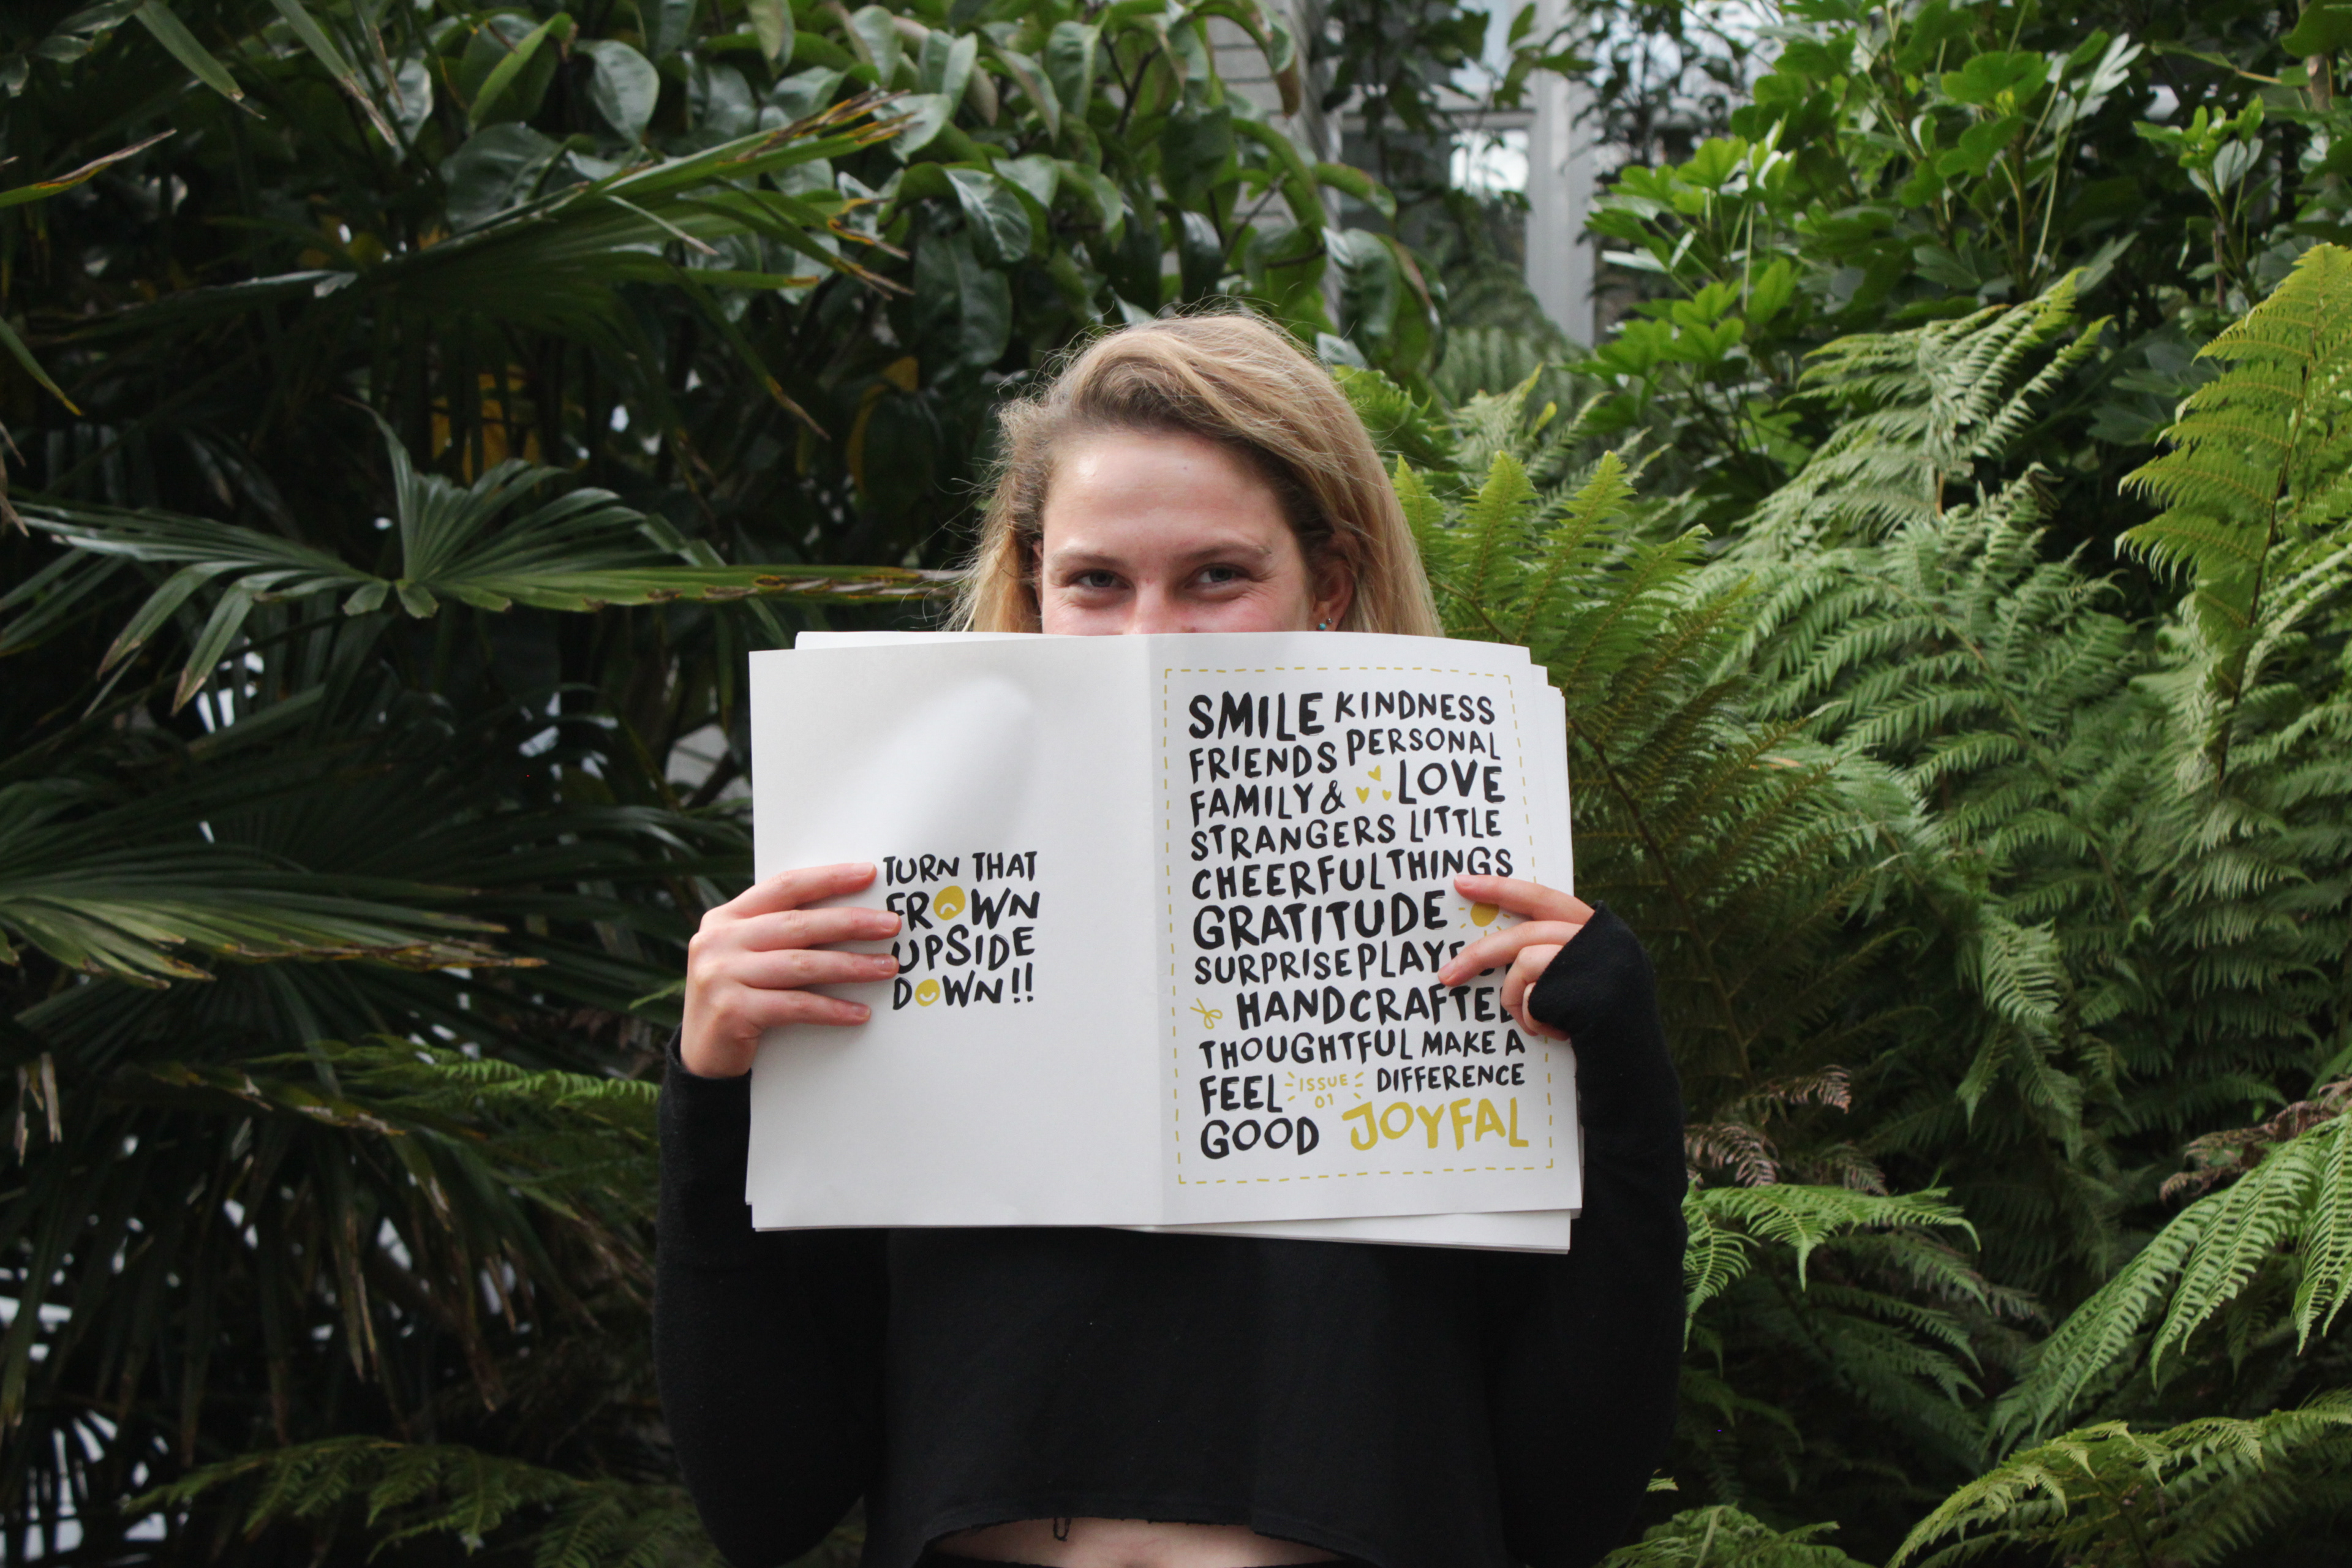 TURN THAT
FROWN
UPSIDE
DOWN!!
SMILE KINDNESS
FRIENDS PERSONAL
FAMILY & LOVE
STRANGERS LITTLE
CHEERFUL THINGS
GRATITUDE
SURPRISE
HANDCRAFTED
THOUGHTFUL MAKE A
FEEL ISSUE 01 DIFFERENCE
GOOD JOYFAL